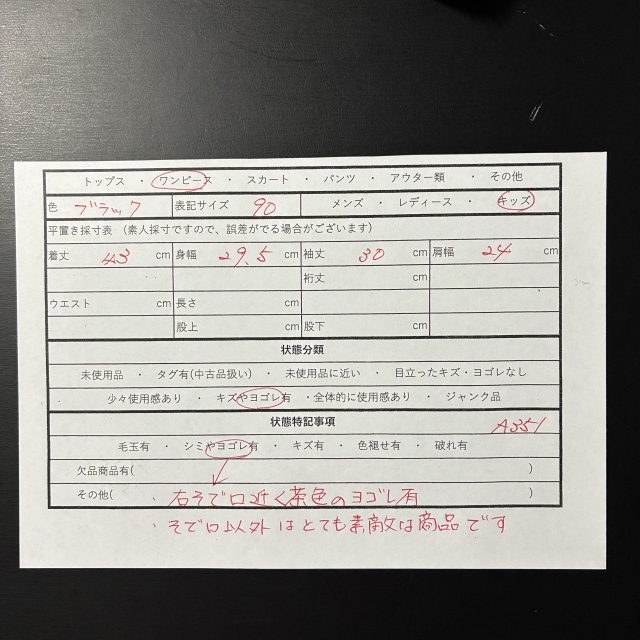 トップス ・ ワンピース ・ スカート ・ パンツ ・ アウター類 ・ その他
色 ブラック 表記サイズ 90 メンズ ・ レディース ・ キッズ
平置き採寸表 (素人採寸ですので、誤差がでる場合がございます)
着丈 43 cm 身幅 29.5 cm 袖丈 30 cm 肩幅 24 cm
裄丈 cm
ウエスト cm 長さ cm
股上 cm 股下 cm
状態分類
未使用品 ・ タグ有(中古品扱い) ・ 未使用品に近い ・ 目立ったキズ・ヨゴレなし
少々使用感あり ・ キズやヨゴレ有 ・全体的に使用感あり ・ ジャンク品
状態特記事項 A351
毛玉有 ・ シミやヨゴレ有 ・ キズ有 ・ 色褪せ有 ・ 破れ有
欠品商品有( )
その他( ・右そで口近く茶色のヨゴレ有 )
・そで口以外はとても素敵な商品です